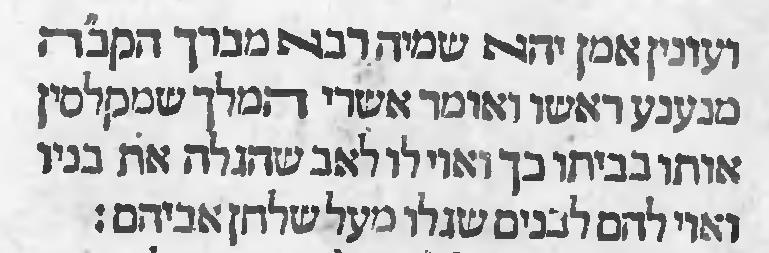 ועונין אמן יהא שמיה רבא מברך הקב"ה
מנענע ראשו ואומר אשרי המלך שמקלסין
אותו בביתו כך ואוי לו לאב שהגלה את בניו
ואוי להם לבנים שגלו מעל שלחן אביהם: